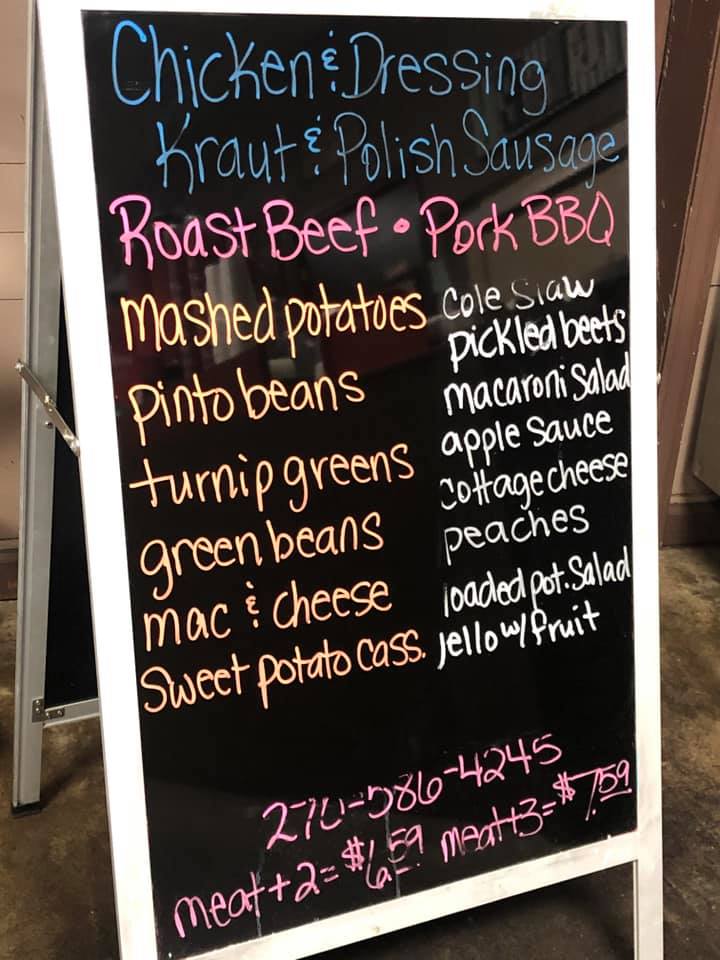 Chicken & Dressing
Kraut & Polish Sausage
Roast Beef • Pork BBQ
mashed potatoes
pinto beans
turnip greens
green beans
mac & cheese
Sweet potato cass.
Cole Slaw
pickled beets
macaroni Salad
apple Sauce
cottage cheese
peaches
loaded pot. Salad
Jello w/ fruit
270-586-4245
meat+2=$6.59 meat+3=$7.59